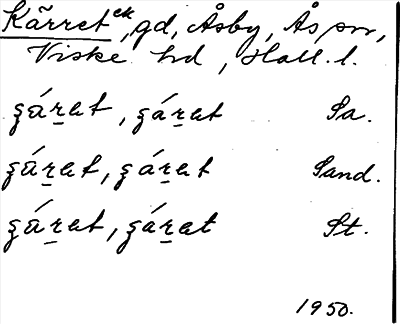 Kärret ek, gd, Åsby, Ås sn,
Viske hd, Hall. l.
ʒár̲at, ʒár̲at Sa.
ʒár̲at, ʒár̲at Sand.
ʒár̲at, ʒár̲at St.
1950.